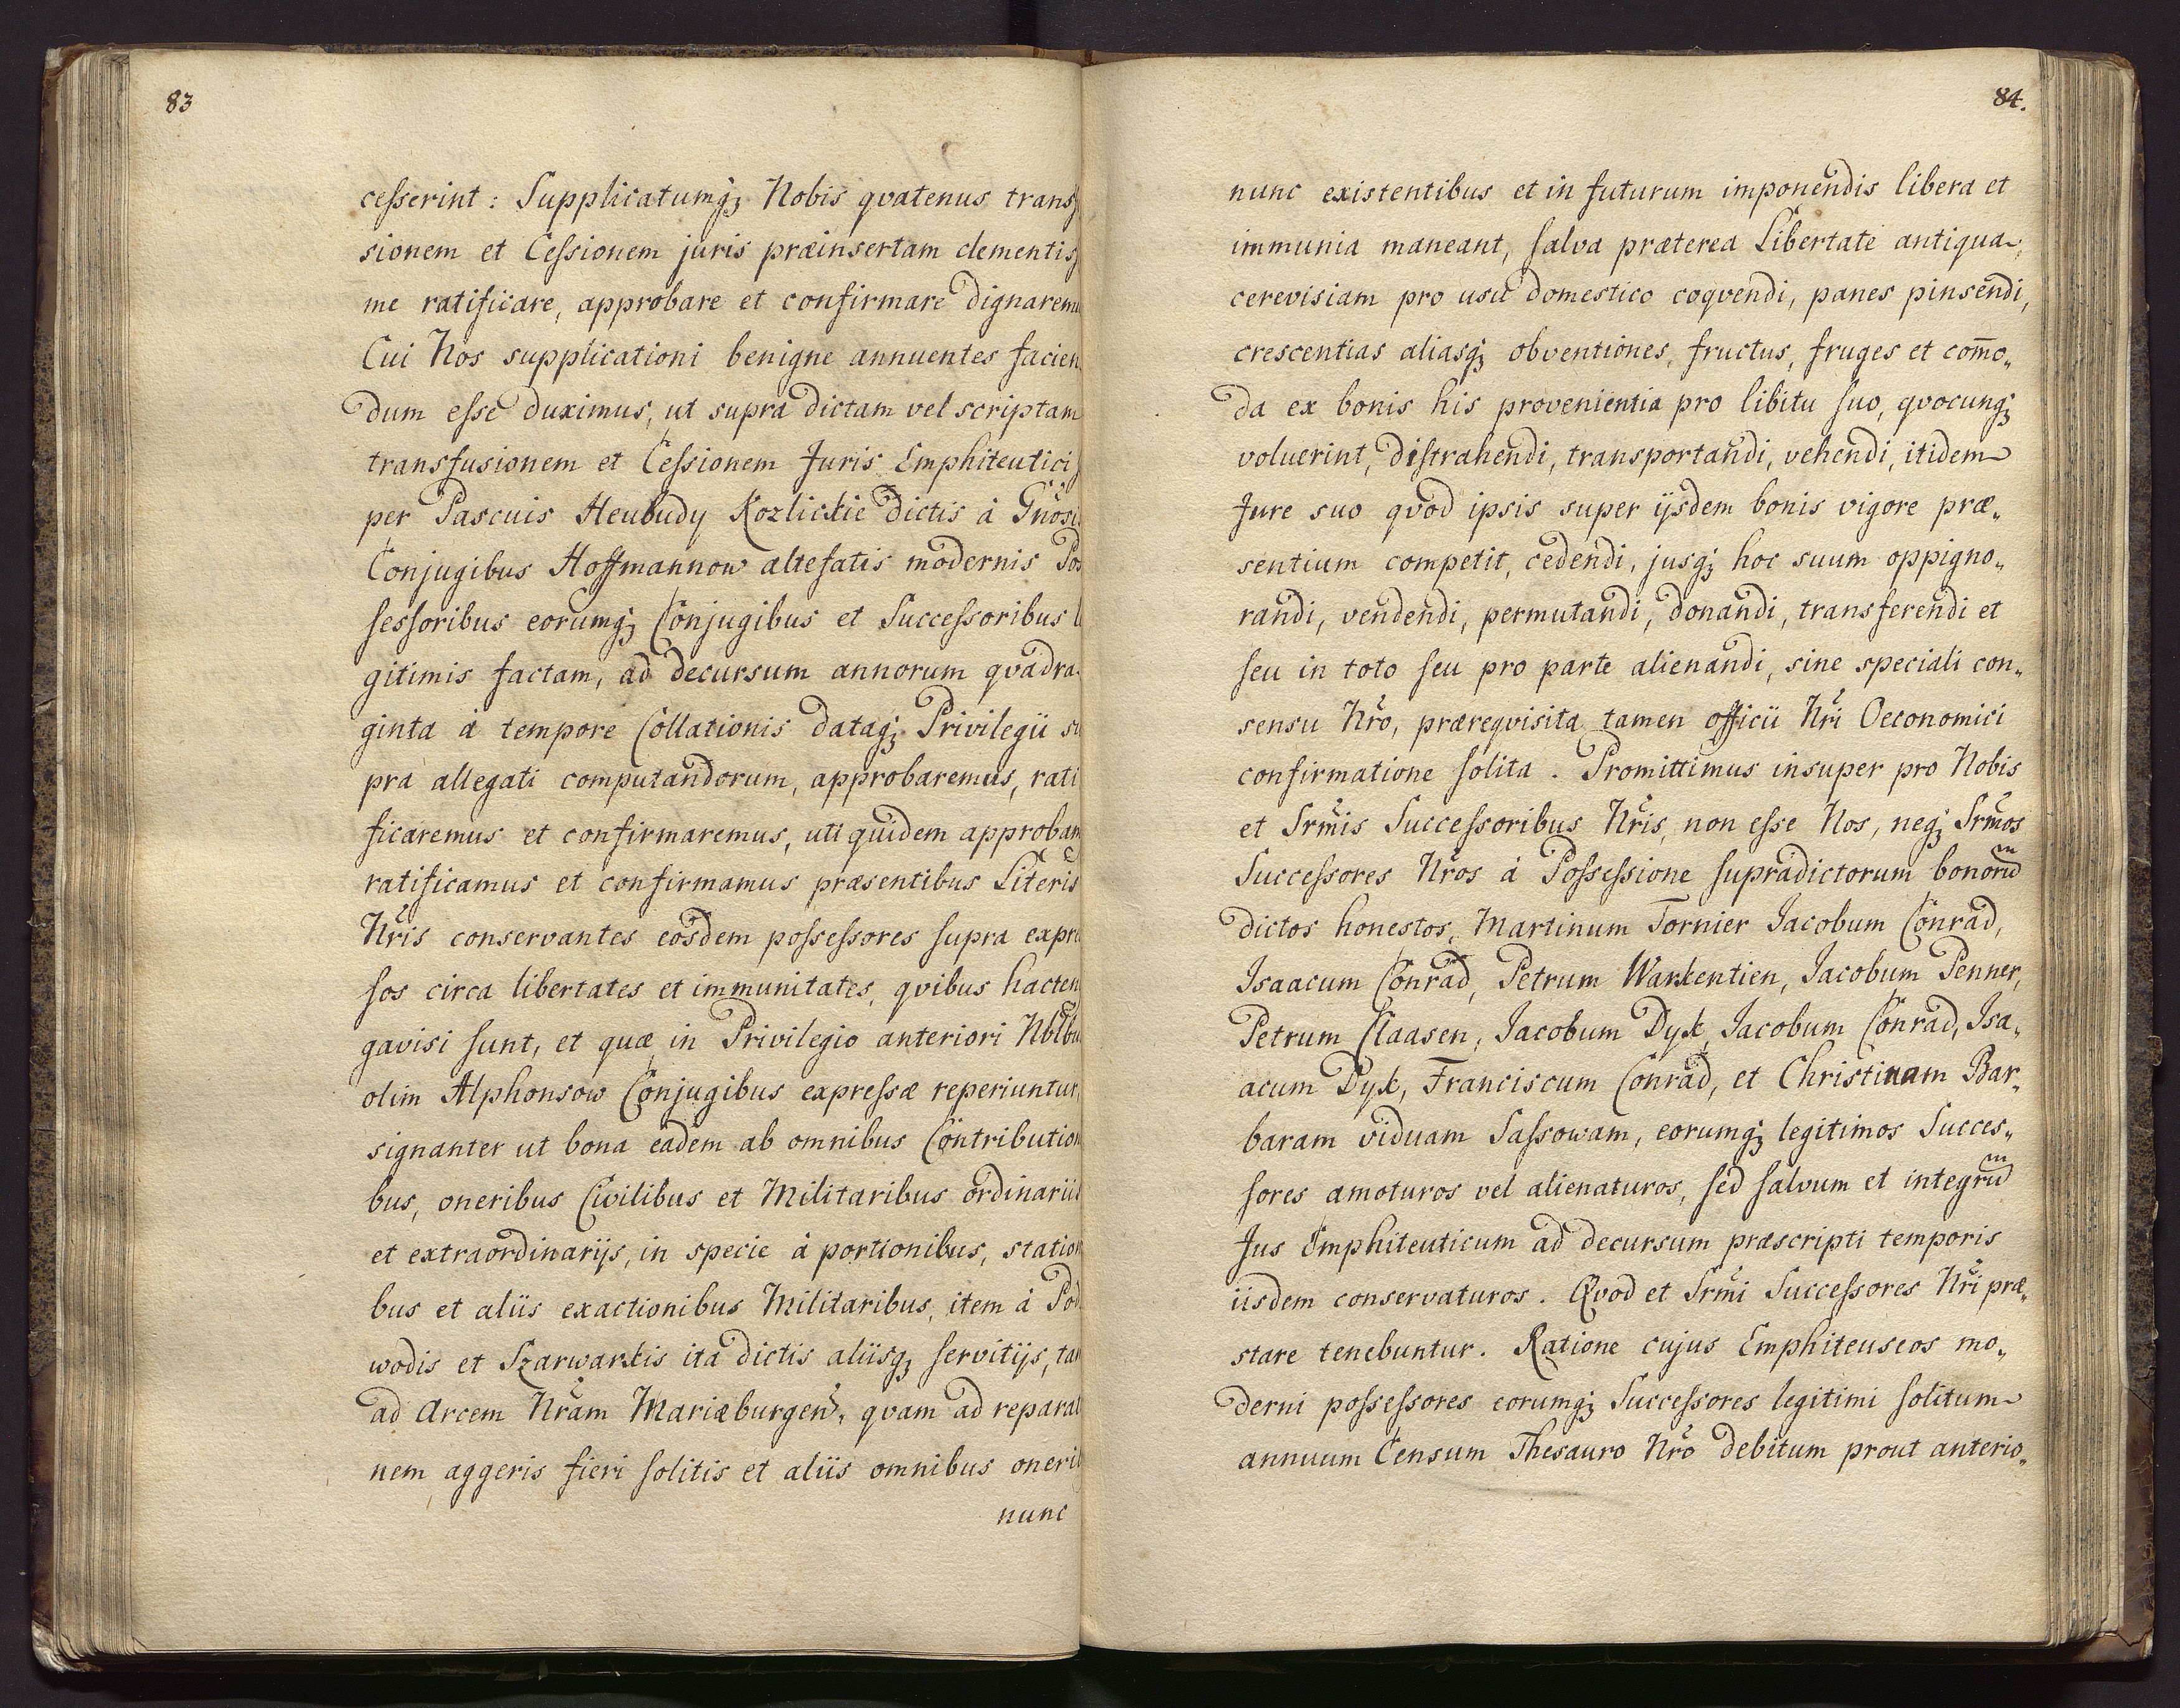 83
cesserint : Supplicatumq; Nobis qvatenus trans
sionem et Cessionem juris præinsertam clementis
me ratificare, approbare et confirmare dignarem
Cui Nos supplicationi benigne annuentes facien
dum esse duximus, ut supra dictam vel scriptam
transfusionem et Cessionem Juris Emphiteutici
per Pascuis Heubudy Kozlickie dictis à Gnôsi
Conjugibus Hoffmannow altefatis modernis Pos
sessoribus eorumq; Conjugibus et Successoribus
gitimis factam, ad decursum annorum qvadra
ginta à tempore Collationis dataq; Privilegii su
pra allegati computandorum, approbaremus, rati
ficaremus et confirmaremus, uti quidem approbam
ratificamus et confirmamus præsentibus Literis
Nr̃is conservantes eosdem possessores supra expre
sos circa libertates et immunitates, qvibus hacten
gavisi sunt, et quæ in Privilegio anteriori Nblbu
olim Alphonsow Conjugibus expressæ reperiuntur,
signanter ut bona eadem ab omnibus Contribution
bus, oneribus Civilibus et Militaribus ordinariis
et extraordinarijs, in specie à portionibus, station
bus et aliis exactionibus Militaribus, item à Pod
wodis et Szarwarkis ita dictis aliisq; servitijs, tam
ad Arcem Nr̃am Mariæburgen̄, qvam ad reparat
nem aggeris fieri solitis et aliis omnibus onerib
nunc
84.
nunc existentibus et in futurum imponendis libera et
immunia maneant, salva præterea Libertate antiqua,
cerevisiam pro usu domestico coqvendi, panes pinsendi,
crescentias aliasq; obventiones, fructus, fruges et com̄o„
da ex bonis his provenientia pro libitu suo, qvocunq;
voluerint, distrahendi, transportandi, vehendi, itidem
Jure suo qvod ipsis super ijsdem bonis vigore præ„
sentium competit, cedendi, jusq; hoc suum oppigno„
randi, vendendi, permutandi, donandi, transferendi et
seu in toto seu pro parte alienandi, sine speciali con„
sensu Nr̃o, prærequisita tamen officii Nr̃i Oeconomici
confirmatione solita . Promittimus insuper pro Nobis
et Srm̃is Successoribus Nr̃is, non esse Nos, neq; Srm̃os
Successores Nr̃os à Possessione supradictorum bonorum
dictos honestos, Martinum Tornier Jacobum Conrad,
Isaacum Conrad, Petrum Warkentien, Jacobum Penner,
Petrum Claasen, Jacobum Dyk, Jacobum Conrad, Isa„
acum Dyk, Franciscum Conrad, et Christinam Bar„
baram viduam Sassowam, eorumq; legitimos Succes„
sores amoturos vel alienaturos, sed salvum et integrum
Jus Emphiteuticum ad decursum præscripti temporis
iisdem conservaturos . Qvod et Srm̃i Successores Nr̃i præ„
stare tenebuntur . Ratione cujus Emphiteuseos mo„
derni possessores eorumq; Successores legitimi solitum
annuum Censum Thesauro Nr̃o debitum prout anterio„